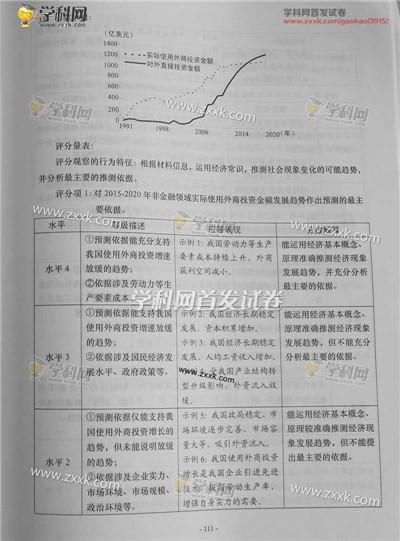 学科网
学科网首发试卷
www.zxxk.com/gaokao/2015/
(亿美元)
1400
1200
1000
800
600
400
200
0
实际使用外商投资金额
对外直接投资金额
1991 1998 2006 2014 2020(年)
评分量表:
评分观察的行为特征:根据材料信息,运用经济常识,推测社会现象变化的可能趋势,
并分析最主要的推测依据。
评分项1:对2015-2020年非金融领域实际使用外商投资金额发展趋势作出预测的最主
要依据。
水平 等级描述 应答表现
水平4
①预测依据能充分支持
我国使用外商投资增速
放缓的趋势;
②依据涉及劳动力等生
产要素成本
示例1:我国劳动力等生产
要素成本持续上升,外商
获利空间减小。
能运用经济基本概念、
原理准确推测经济现象
发展趋势,并充分分析
最主要的依据。
学科网首发试卷
水平3
①预测依据能支持我国
使用外商投资增速放缓
的趋势;
②依据涉及国民经济发
展水平、政府政策等。
示例2:我国经济长期稳定
发展,资本积累增加。
示例3:我国经济长期稳定
发展,人均工资收入增加。
我国产业结构转
型升级影响,外资流入放
缓。
能运用经济基本概念、
原理准确推测经济现象
发展趋势,但不能充分
分析最主要的依据。
水平2
①预测依据仅能支持我
国使用外商投资增长的
趋势,但未能说明放缓
的趋势;
②依据涉及企业实力、
市场环境、市场规模、
政治环境等。
示例5:我国政局稳定、市
场环境逐步完善、市场容
量大等,吸引外资流入。
示例6:我国使用外商投资
增长是我国企业引进先进
技术、提高劳动生产率、
增强自身实力的需要。
能运用经济基本概念、
原理较准确推测经济现
象发展趋势,但不能提
出最主要的依据。
www.zxxk.com
- 111 -